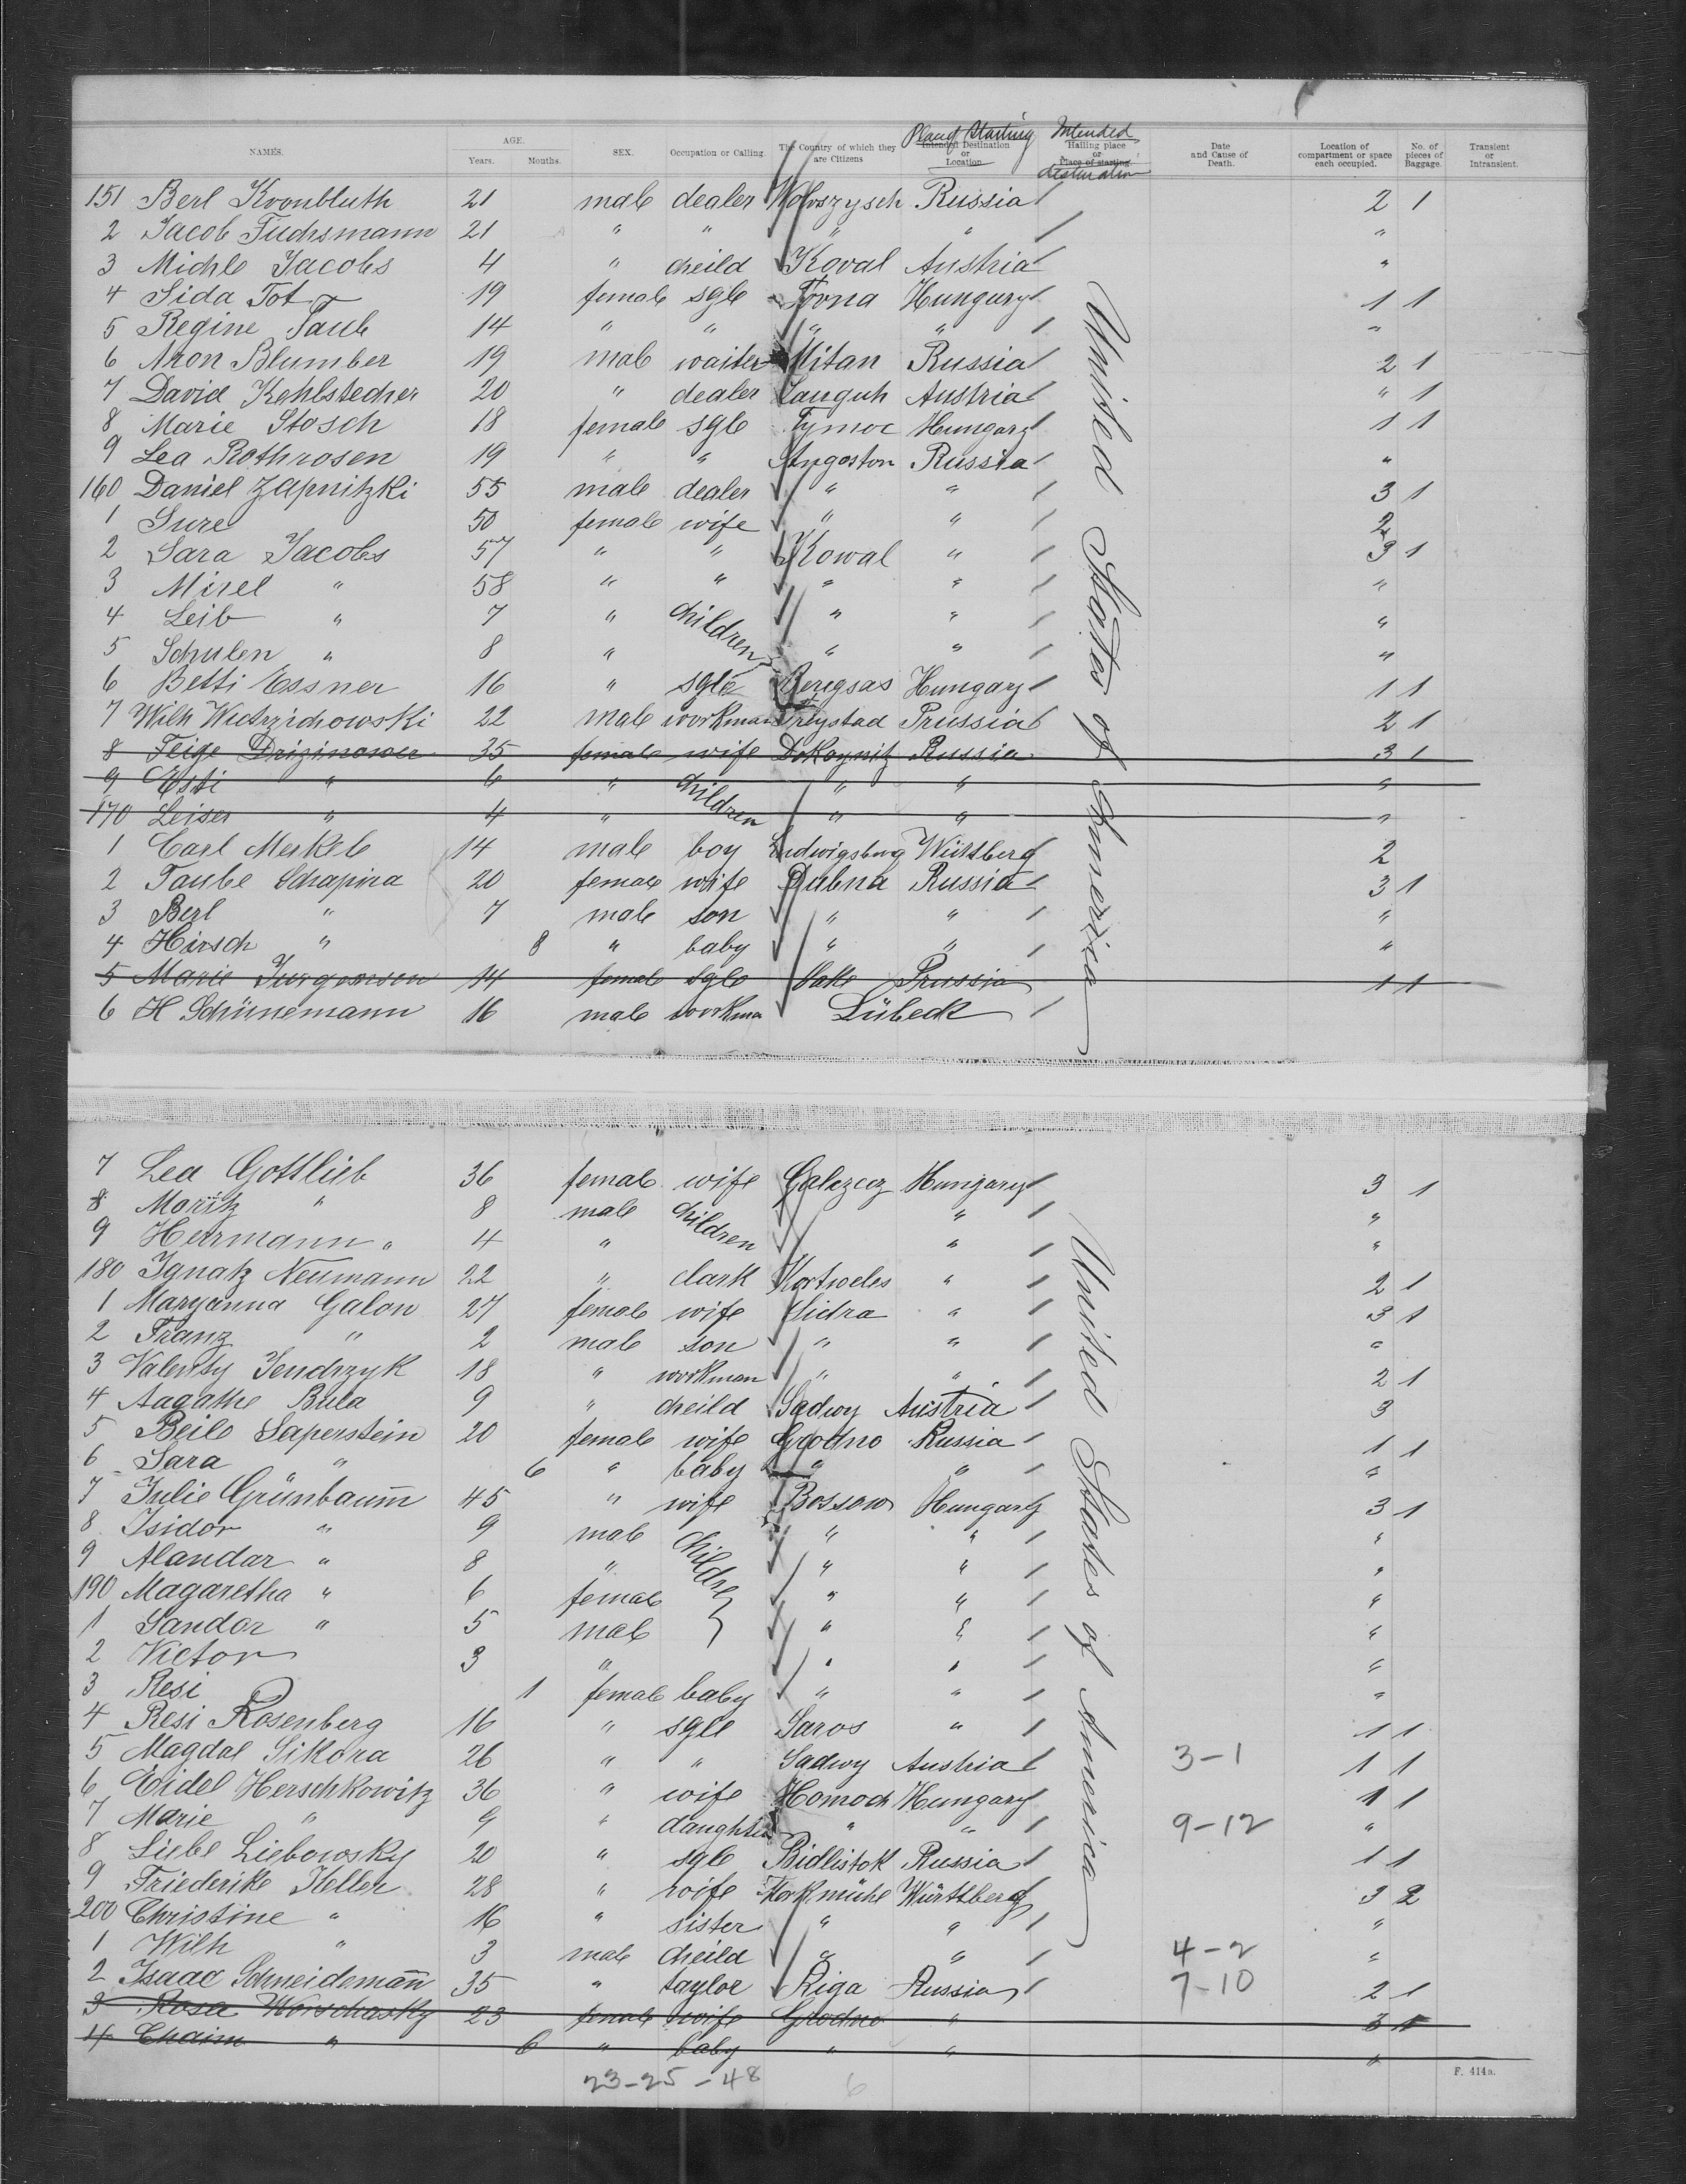 Place of Starting Intended
NAMES. AGE. Years. Months. SEX. Occupation or Calling. The Country of which they are Citizens Intended Destination or Location Hailing place or Place of starting. destination Date and Cause of Death. Location of compartment or space each occupied. No. of pieces of Baggage. Transient or Intransient.
151 Berl Kronbluth 21 male dealer Russia 2 1
2 Jacob Fuchsmann 21 " " " " "
3 Michle Jacobs 4 " cheild Koval Austria "
4 Sida Tot 19 female sgle Torna Hungary 1 1
5 Regine Taub 14 " " " " "
6 Aron Blumber 19 male waiter Mitan Russia 2 1
7 David Kohlstecher 20 " dealer Austria " 1
8 Marie Stosch 18 female sgle Tymoc Hungary 1 1
9 Lea Rothrosen 19 " " Angoston Russia "
160 Daniel Zapnitzki 55 male dealer " " 3 1
1 Sure 50 female wife " " 2
2 Sara Jacobs 57 " " Kowal " 3 1
3 Mirel " 58 " " " " "
4 Leib " 7 " children " " "
5 Schulen " 8 " " " "
6 Betti Essner 16 " sgle Beregsas Hungary 1 1
7 Wilh Wietrzichowski 22 male workman Freystad Prussia 2 1
8 Feige Driginower 25 female wife Dokoynitz Russia 3 1
9 Esti " 6 " children " " "
170 Leiser " 4 " " " "
1 Carl Merkele 14 male boy Ludwigsburg Würtberg 2
2 Taube Schapira 20 female wife Dubna Russia 3 1
3 Berl " 7 male son " " "
4 Hirsch " 8 " baby " " "
5 Marie Jurgensen 14 female sgle Prussia 1 1
6 H Schünemann 16 male workman Lübeck
United States of America
7 Lea Gottlieb 36 female wife Galszecz Hungary 3 1
8 Moritz " 8 male children " "
9 Herrmann " 4 " " "
180 Ignatz Neumann 22 " clark Kortvoeles " 2 1
1 Maryanna Galon 27 female wife Sidra " 3 1
2 Franz " 2 male son " " "
3 Valenty Jendrzyk 18 " workman " " 2 1
4 Aagathe Bula 9 " cheild Sadwy Austria 3
5 Beile Saperstein 20 female wife Grodno Russia 1 1
6 Sara " 6 " baby " " "
7 Julie Grünbaum 45 " wife Bossow Hungary 3 1
8 Isidor " 9 male childre " " "
9 Alandar " 8 " " " "
190 Magaretha " 6 female " " "
1 Sandor " 5 male " " "
2 Victor 3 " " " "
3 Resi 1 female baby " " "
4 Resi Rosenberg 16 " sgle Saros " 1 1
5 Magdal Sikora 26 " " Sadwy Austria 3-1 1 1
6 Eidel Herschkowitz 36 " wife Homoch Hungary 1 1
7 Marie " 9 " daughter " " 9-12 "
8 Liebe Liebowsky 20 " sgle Bidlistok Russia 1 1
9 Friederike Keller 28 " wife Würtberg 3 2
200 Christine " 16 " sister " " "
1 Wilh " 3 male cheild " " 4-2 "
2 Isaac Schneidemann 35 " taylor Riga Russia 7-10 2 1
3 Rosa Worschasky 23 female wife Grodno " 3 1
4 Chaim " 6 " baby " " "
United States of America
23-25-48 6
F. 414a.